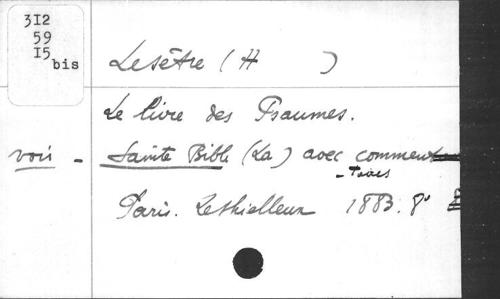 312
59
15
bis
Lesêtre (H )
Le livre des Psaumes.
voir - Sainte Bible (La) avec commen
-taires
Paris. Lethielleux 1883. 8°